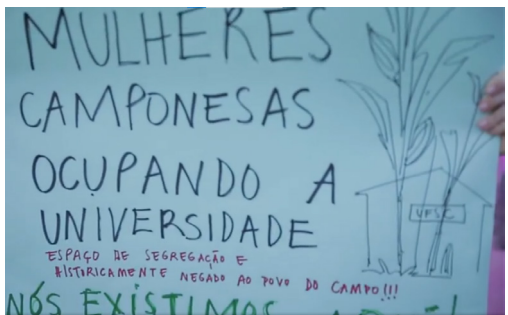 MULHERES
CAMPONESAS
OCUPANDO A
UNIVERSIDADE
UFSC
ESPAÇO DE SEGREGAÇÃO E
HISTORICAMENTE NEGADO AO POVO DO CAMPO!!!
NÓS EXISTIMOS